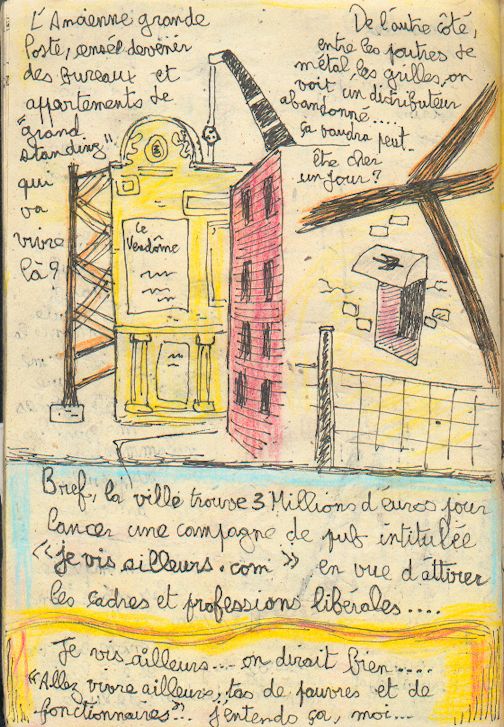 L'Ancienne grande
Poste, censée devenir
des Bureaux et
appartements de
"grand
standing"
qui
va
vivre
là?
De l'autre côté,
entre les poutres de
métal, les grilles, on
voit un distributeur
abandonné....
Ça vaudra peut-
être cher
un jour?
Le
Vendôme
Bref, la ville trouve 3 Millions d'euros pour
lancer une campagne de pub intitulée
"je vis ailleurs.com" en vue d'attirer
les cadres et professions libérales....
Je vis ailleurs... on dirait bien....
"Allez vivre ailleurs, tas de pauvres et de
fonctionnaires"... j'entends ça, moi...